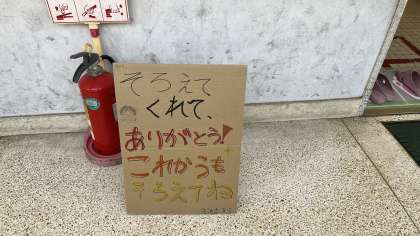 そろえて
くれて、
ありがとう!
これからも
そろえてね